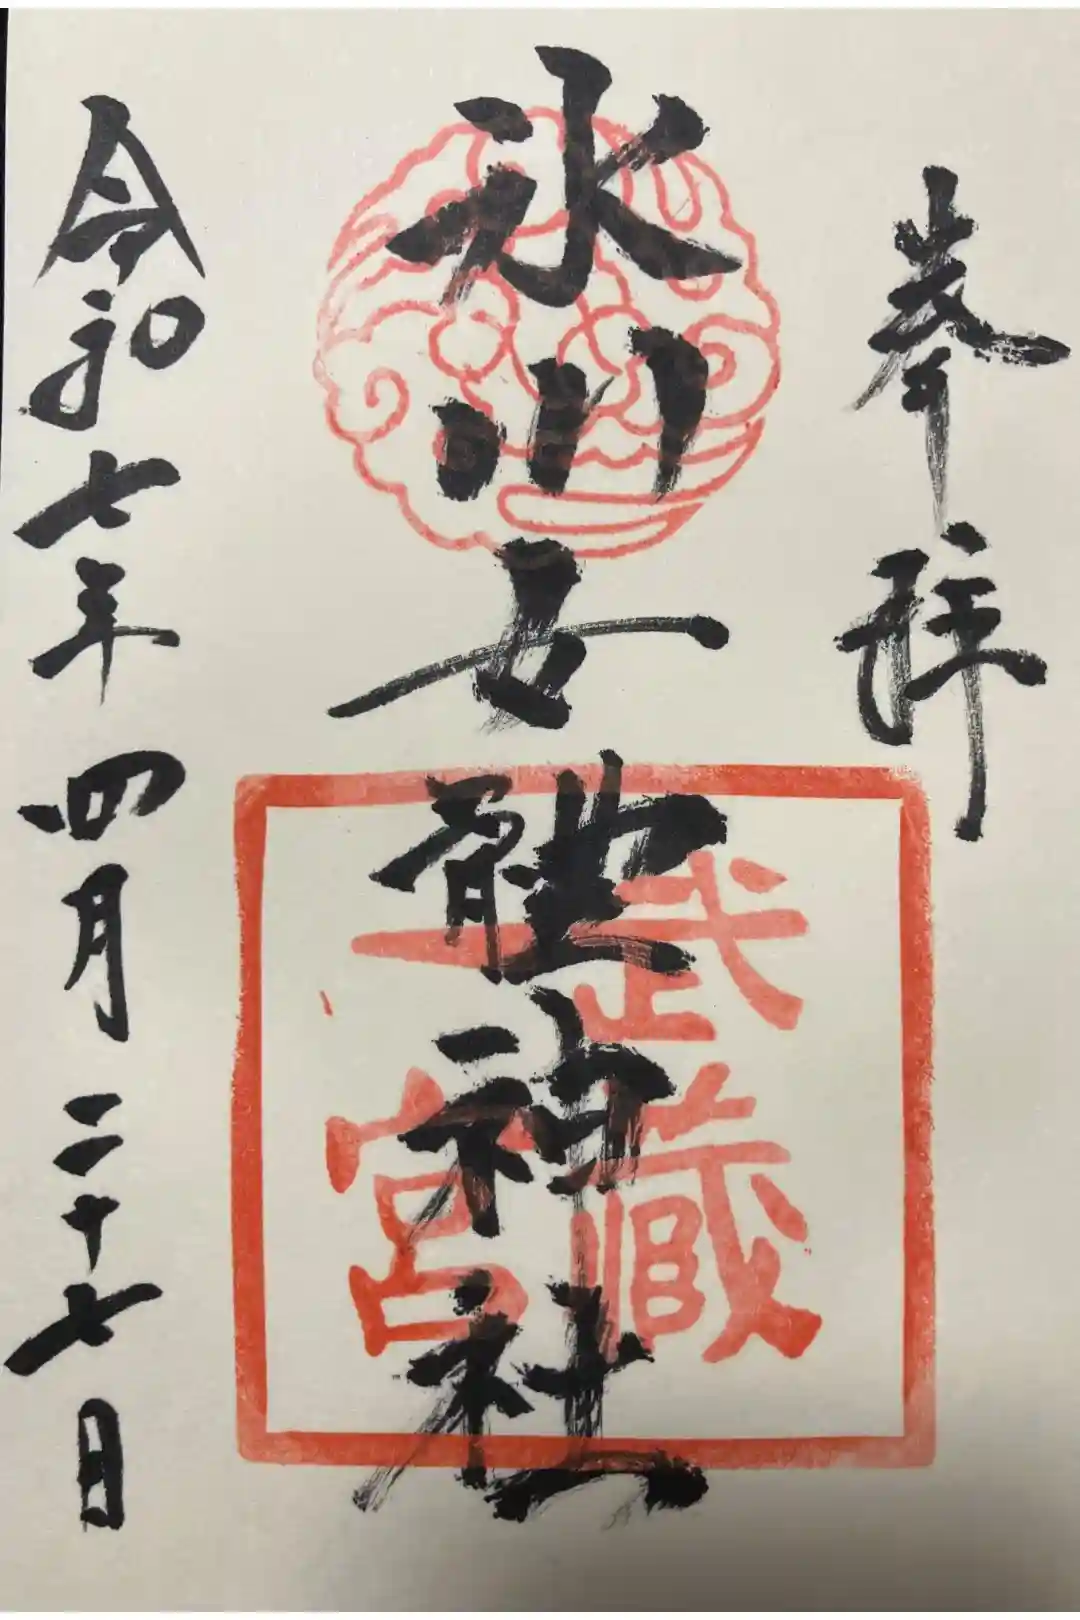 奉拝
氷川女體神社
武蔵
一宮
令和七年四月二十七日